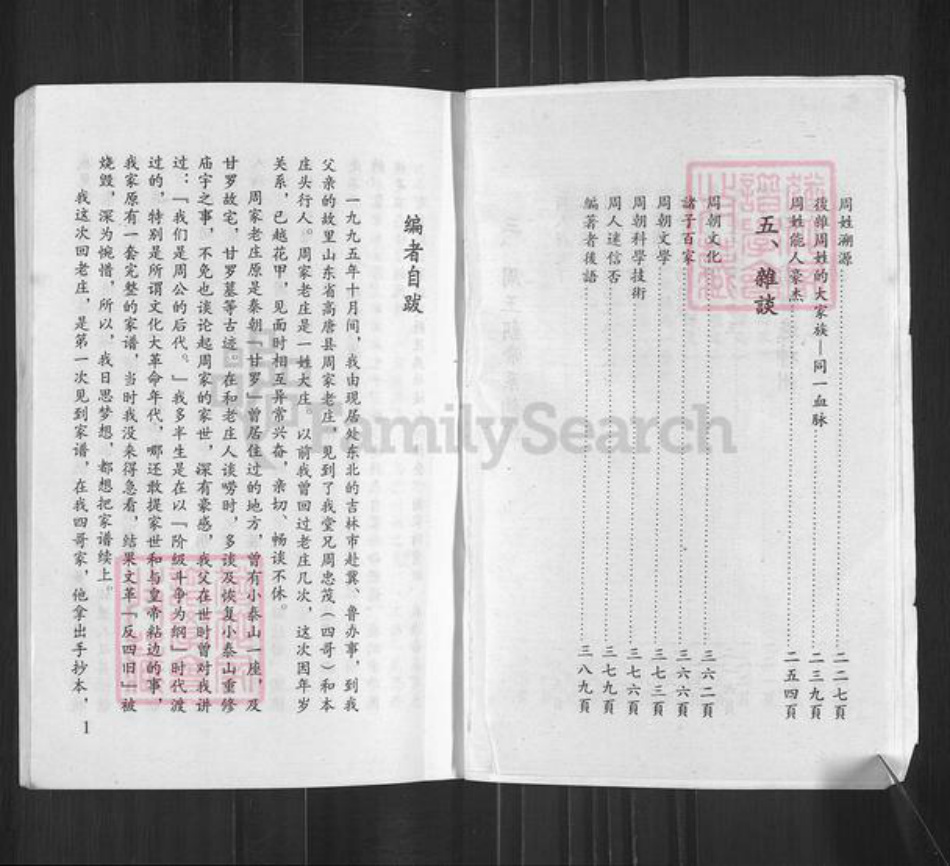 周姓溯源 二二七頁
後雜周姓的大家族—同一血脉 二三九頁
周姓能人豪杰 二五四頁
五、雜談
周朝文化 三六二頁
諸子百家 三六六頁
周朝文學 三七三頁
周朝科學技術 三七六頁
周人迷信否 三七九頁
編著者後語 三八九頁
编者自跋
一九九五年十月间，我由现居处东北的吉林市赴冀、鲁办事，到我
父亲的故里山东省高唐县周家老庄，见到了我堂兄周忠茂（四哥）和本
庄头行人。周家老庄是一姓大庄，以前我曾回过老庄几次，这次因年岁
关系，已越花甲，见面时相互异常兴奋，亲切、畅谈不休。
周家老庄原是秦朝「甘罗」曾居住过的地方，曾有小泰山一座，及
甘罗故宅，甘罗墓等古迹。在和老庄人谈唠时，多谈及恢复小泰山重修
庙宇之事，不免也谈论起周家的家世，深有豪感，我父在世时曾对我讲
过：「我们是周公的后代。」我多半生是在以「阶级斗争为纲」时代渡
过的，特别是所谓文化大革命年代，哪还敢提家世和与皇帝粘边的事，
我家原有一套完整的家谱，当时我没来得急看，结果文革「反四旧」被
烧毁，深为惋惜，所以，我日思梦想，都想把家谱续上。
我这次回老庄，是第一次见到家谱，在我四哥家，他拿出手抄本，
1
FamilySearch